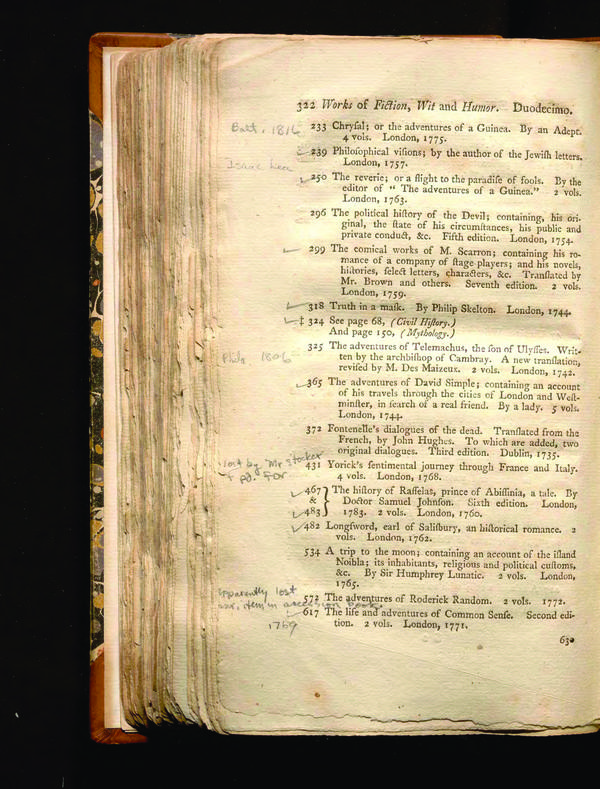 322 Works of Fiction, Wit and Humor. Duodecimo.
Balt. 1816
233 Chryſal; or the adventures of a Guinea. By an Adept.
4 vols. London, 1775.
239 Philoſophical viſions; by the author of the Jewiſh letters.
London, 1757.
250 The reverie; or a flight to the paradiſe of fools. By the
editor of “ The adventures of a Guinea.” 2 vols.
London, 1763.
296 The political hiſtory of the Devil; containing, his ori-
ginal, the ſtate of his circumſtances, his public and
private conduct, &c. Fifth edition. London, 1754.
299 The comical works of M. Scarron; containing his ro-
mance of a company of ſtage-players; and his novels,
hiſtories, ſelect letters, characters, &c. Tranſlated by
Mr. Brown and others. Seventh edition. 2 vols.
London, 1759.
318 Truth in a maſk. By Philip Skelton. London, 1744.
‡ 324 See page 68, (Civil Hiſtory.)
And page 150, (Mythology.)
325 The adventures of Telemachus, the ſon of Ulyſſes. Writ-
ten by the archbiſhop of Cambray. A new tranſlation,
reviſed by M. Des Maizeux. 2 vols. London, 1742.
Phila 1806
365 The adventures of David Simple; containing an account
of his travels through the cities of London and Weſt-
minſter, in ſearch of a real friend. By a lady. 5 vols.
London, 1744.
372 Fontenelle's dialogues of the dead. Tranſlated from the
French, by John Hughes. To which are added, two
original dialogues. Third edition. Dublin, 1735.
lost by Mr Stocker
& pd. for
431 Yorick's ſentimental journey through France and Italy.
4 vols. London, 1768.
467 } The hiſtory of Raſſelas, prince of Abiſſinia, a tale. By
& Doctor Samuel Johnſon. Sixth edition. London,
483 } 1783. 2 vols. London, 1760.
482 Longſword, earl of Saliſbury, an hiſtorical romance. 2
vols. London, 1762.
534 A trip to the moon; containing an account of the iſland
Noibla; its inhabitants, religious and political cuſtoms,
&c. By Sir Humphrey Lunatic. 2 vols. London,
1765.
apparently lost
item in accession book
1769
572 The adventures of Roderick Random. 2 vols. 1772.
617 The life and adventures of Common Senſe. Second edi-
tion. 2 vols. London, 1771.
630